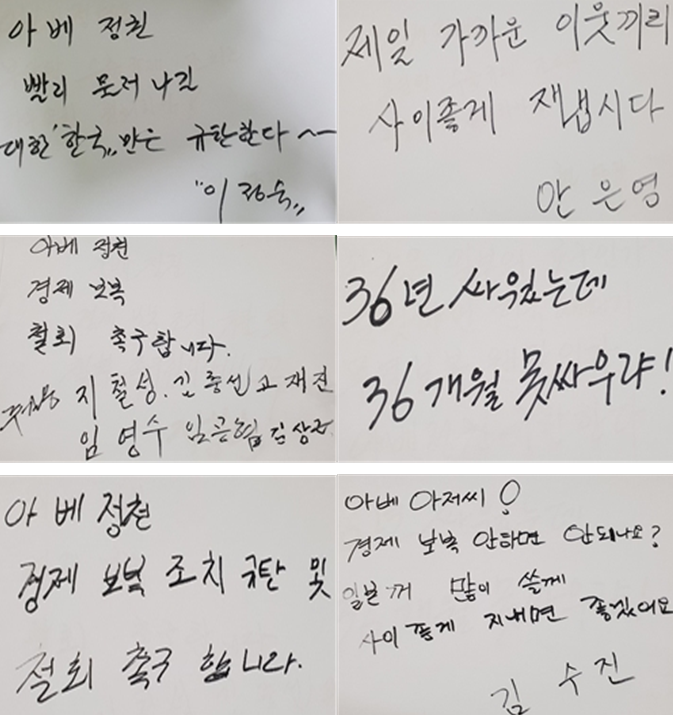 아베 정권
빨리 물러나길
대한"한국"만은 규탄한다 ~
"이정숙"
제일 가까운 이웃끼리
사이좋게 재냅시다
안은영
아베 정권
경제 보복
철회 촉구합니다.
지철성. 김종선 고재진
임영수 김상규
36년 싸웠는데
36개월 못싸우랴!
아베 정권
경제 보복 조치 규탄 및
철회 촉구 합니다.
아베 아저씨!
경제 보복 안하면 안되나요?
일본꺼 많이 쓸께
사이 좋게 지내면 좋겠어요
김수진